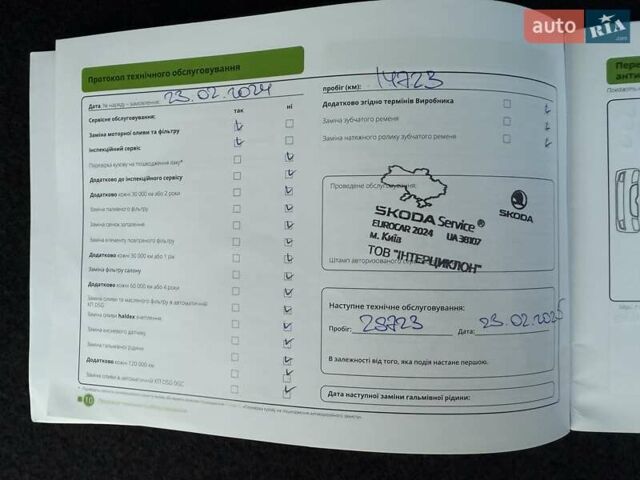 auto RIA .com
Протокол технічного обслуговування
Дата № наряду – замовлення: 23.02.2024
так ні
Сервісне обслуговування:
Заміна моторної оливи та фільтру
Інспекційний сервіс
Перевірка кузову на пошкодження лаку*
Додатково до інспекційного сервісу
Додатково кожні 30 000 км або 2 роки
Заміна паливного фільтру
Заміна свічок запалення
Заміна елементу повітряного фільтру
Додатково кожні 30 000 км або 1 рік
Заміна фільтру салону
Додатково кожні 60 000 км або 4 роки
Заміна оливи та масляного фільтру в автоматичній
КП DSG
Заміна оливи haldex зчеплення
Заміна кисневого датчику
Заміна гальмівної рідини
Додатково кожні 120 000 км
Заміна оливи в автоматичній КП DSG
10
пробіг (км): 14723
Додатково згідно термінів Виробника
Заміна зубчатого ременя
Заміна натяжного ролику зубчатого ременя
Проведене обслуговування:
SKODA Service®
SKODA
EUROCAR 2024 UA 38107
м. Київ
ТОВ "ІНТЕРЦИКЛОН"
Штамп авторизованого
Наступне технічне обслуговування:
Пробіг: 28723 Дата: 23.02.2025
В залежності від того, яка подія настане першою.
Дата наступної заміни гальмівної рідини: